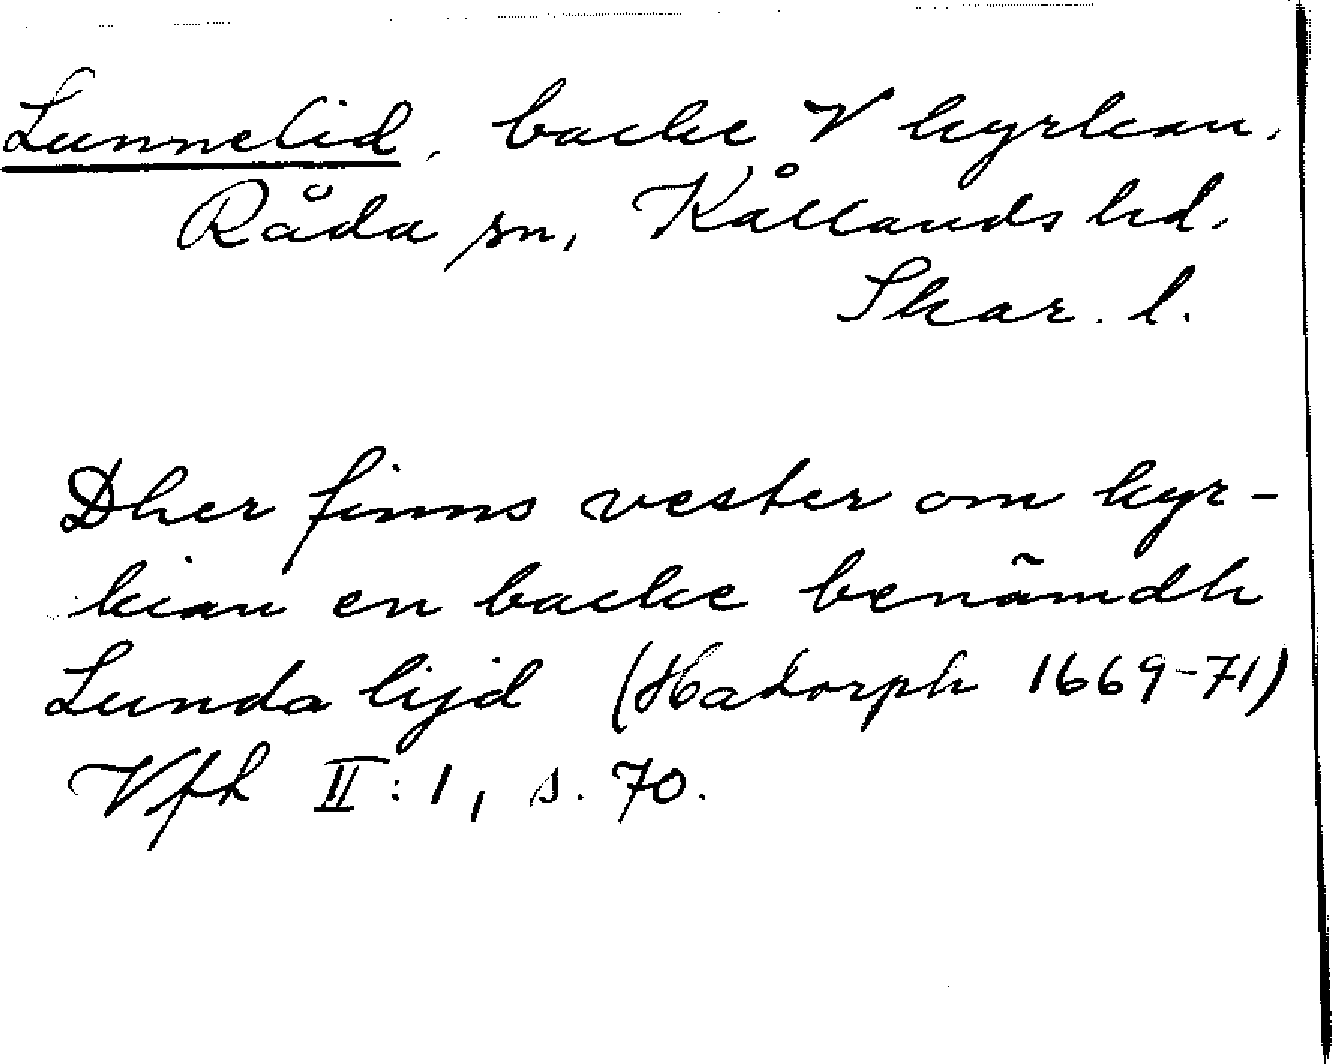 Lunnelid, backe V kyrkan.
Råda sn, Kållands hd.
Skar. l.
Dher finns vester om kyr-
kian en backe benämdh
Lunda lijd (Hadorph 1669-71)
Vfh II:1, s. 70.